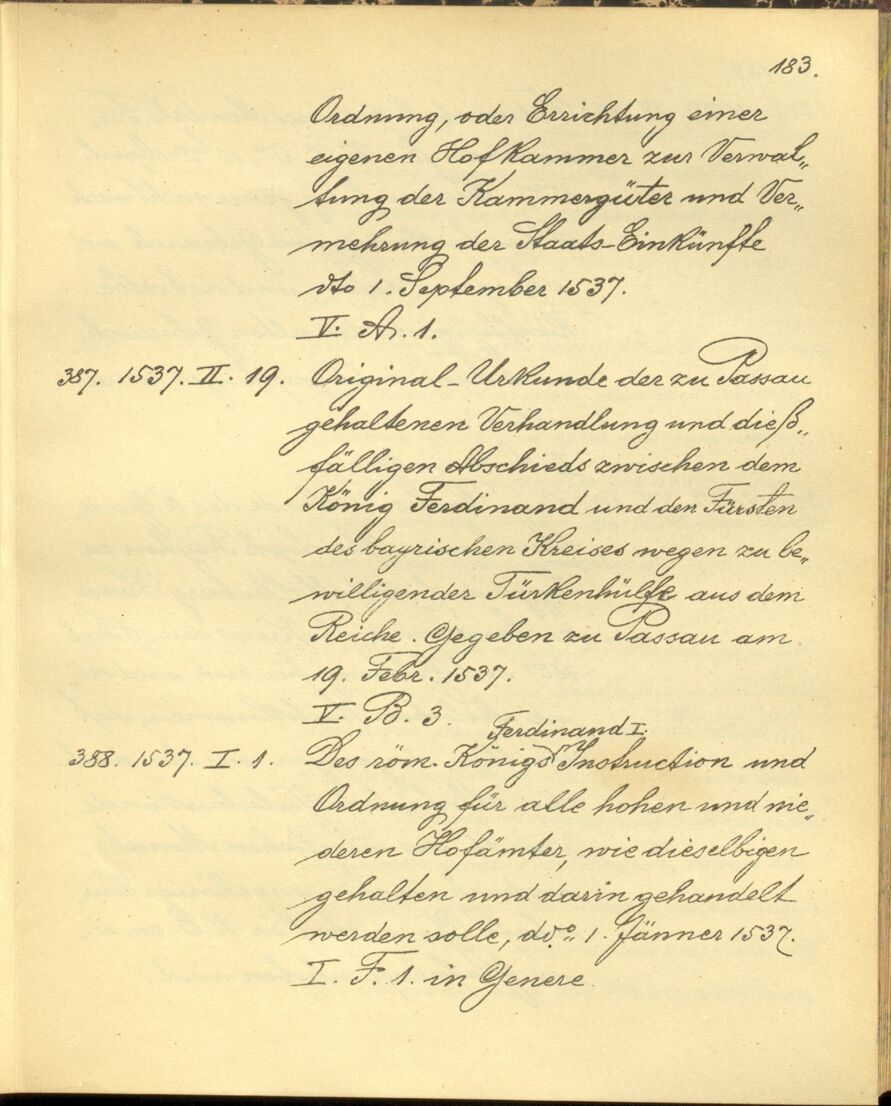 183.
Ordnung, oder Errichtung einer
eigenen Hofkammer zur Verwal„
tung der Kammergüter und Ver„
mehrung der Staats-Einkünfte
dto 1. September 1537.
V. A. 1.
387. 1537. II. 19. Original-Urkunde der zu Passau
gehaltenen Verhandlung und dieß„
fälligen Abschieds zwischen dem
König Ferdinand und den Fürsten
des bayrischen Kreises wegen zu be„
willigender Türkenhülfe aus dem
Reiche. Gegeben zu Passau am
19. Febr. 1537.
V. B. 3.
Ferdinand I.
388. 1537. I. 1. Des röm. Königs Instruction und
Ordnung für alle hohen und nie„
deren Hofämter, wie dieselbigen
gehalten und darin gehandelt
werden solle, do. 1. Jänner 1537.
I. F. 1. in Genere.